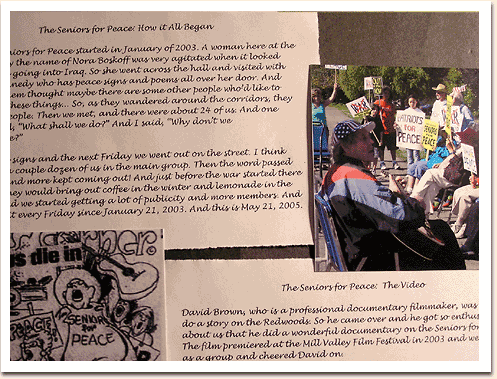 The Seniors for Peace: How it All Began
Seniors for Peace started in January of 2003. A woman here at the
by the name of Nora Boskoff was very agitated when it looked
going into Iraq. So she went across the hall and visited with
who has peace signs and poems all over her door. And
them thought maybe there are some other people who'd like to
these things... So, as they wandered around the corridors, they
people. Then we met, and there were about 24 of us. And one
"What shall we do?" And I said, "Why don't we
signs and the next Friday we went out on the street. I think
couple dozen of us in the main group. Then the word passed
and more kept coming out! And just before the war started there
they would bring out coffee in the winter and lemonade in the
d we started getting a lot of publicity and more members. And
t every Friday since January 21, 2003. And this is May 21, 2005.
PATRIOTS
FOR
PEACE
SENIORS
FOR
PEACE
WAR
us die in
SENIORS
FOR
PEACE
The Seniors for Peace: The Video
David Brown, who is a professional documentary filmmaker, was
do a story on the Redwoods. So he came over and he got so enthus
about us that he did a wonderful documentary on the Seniors for
The film premiered at the Mill Valley Film Festival in 2003 and we
as a group and cheered David on.